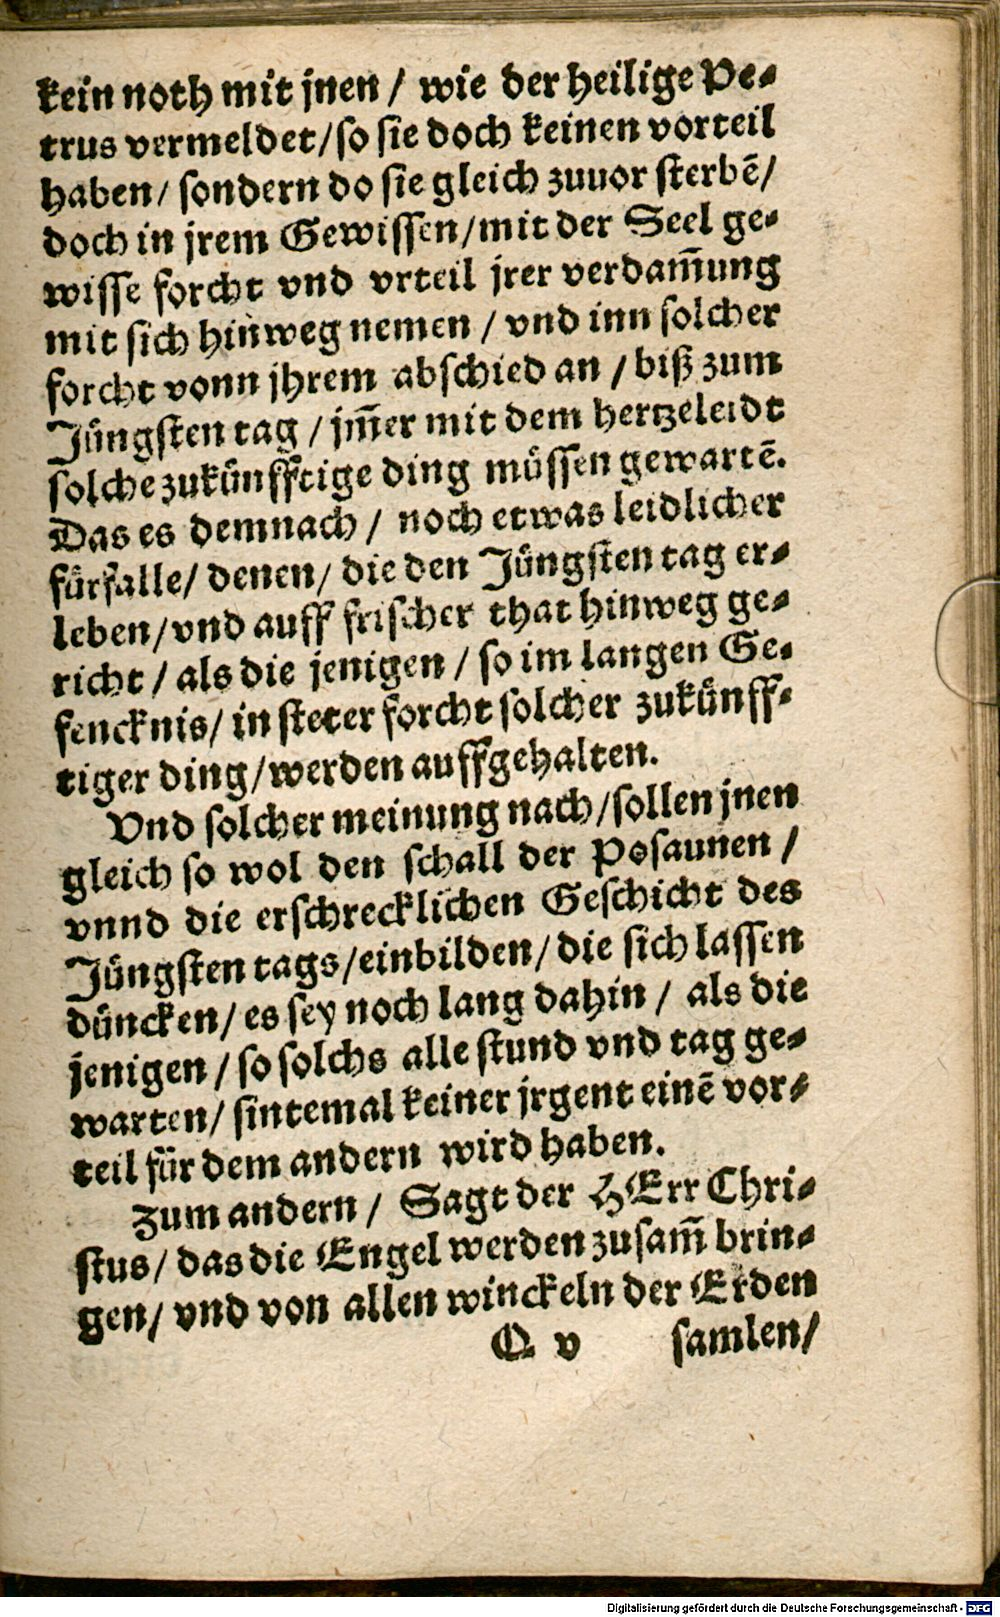 kein noth mit jnen / wie der heilige Pe-
trus vermeldet/so sie doch keinen vorteil
haben/ sondern do sie gleich zuuor sterbē/
doch in jrem Gewissen/mit der Seel ge-
wisse forcht vnd vrteil jrer verdam̄ung
mit sich hinweg nemen / vnd inn solcher
forcht vonn jhrem abschied an / biß zum
Jüngsten tag / jm̄er mit dem hertzeleidt
solche zukünfftige ding müssen gewartē.
Das es demnach / noch etwas leidlicher
fürfalle/ denen/ die den Jüngsten tag er-
leben/vnd auff frischer that hinweg ge-
richt / als die jenigen / so im langen Ge-
fencknis/ in steter forcht solcher zukünff-
tiger ding/werden auffgehalten.
Vnd solcher meinung nach/sollen jnen
gleich so wol den schall der Posaunen /
vnnd die erschrecklichen Geschicht des
Jüngsten tags/einbilden/die sich lassen
düncken/ es sey noch lang dahin / als die
jenigen / so solchs alle stund vnd tag ge-
warten/ sintemal keiner jrgent einē vor-
teil für dem andern wird haben.
Zum andern / Sagt der HErr Chri-
stus/ das die Engel werden zusam̄ brin-
gen/ vnd von allen winckeln der Erden
Q v samlen/
Digitalisierung gefördert durch die Deutsche Forschungsgemeinschaft - DFG